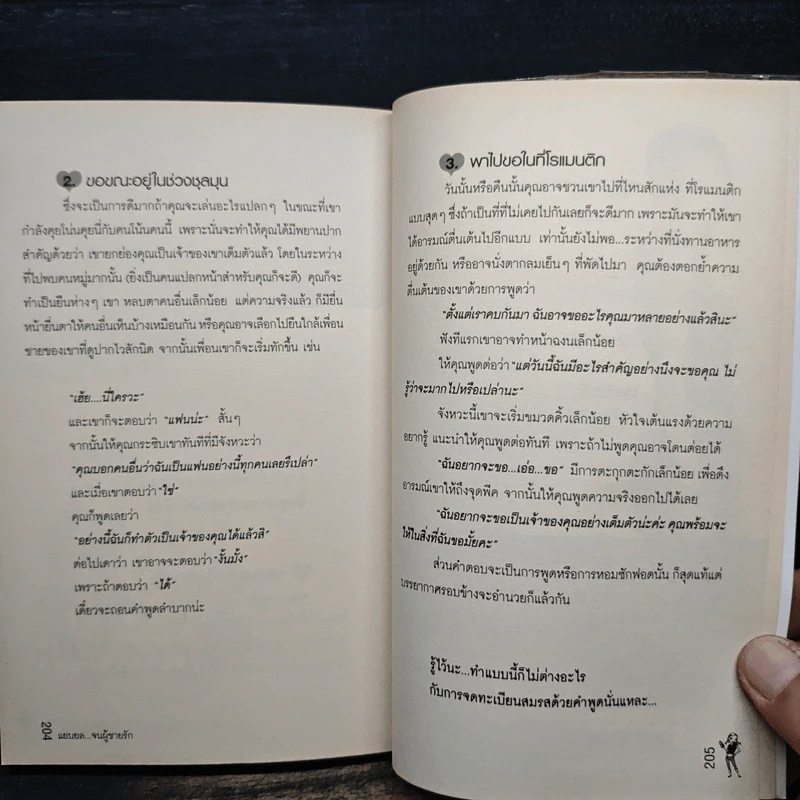 2. ขอขณะอยู่ในช่วงชุลมุน
ซึ่งจะเป็นการดีมากถ้าคุณจะเล่นอะไรแปลกๆ ในขณะที่เขา
กำลังคุยโน่นคุยนี่กับคนโน้นคนนี้ เพราะนั่นจะทำให้คุณได้มีพยานปาก
สำคัญด้วยว่า เขายกย่องคุณเป็นเจ้าของเขาเต็มตัวแล้ว โดยในระหว่าง
ที่ไปพบคนหมู่มากนั้น (ยิ่งเป็นคนแปลกหน้าสำหรับคุณก็จะดี) คุณก็จะ
ทำเป็นยืนห่างๆ เขา หลบตาคนอื่นเล็กน้อย แต่ความจริงแล้ว ก็มียื่น
หน้ายื่นตาให้คนอื่นเห็นบ้างเหมือนกัน หรือคุณอาจเลือกไปยืนใกล้เพื่อน
ชายของเขาที่ดูปากไวสักนิด จากนั้นเพื่อนเขาก็จะเริ่มทักขึ้น เช่น
"เฮ้ย....นี่ใครวะ"
และเขาก็จะตอบว่า "แฟนน่ะ" สั้นๆ
จากนั้นให้คุณกระซิบเขาทันทีที่มีจังหวะว่า
"คุณบอกคนอื่นว่าฉันเป็นแฟนอย่างนี้ทุกคนเลยรึเปล่า"
และเมื่อเขาตอบว่า "ใช่"
คุณก็พูดเลยว่า
"อย่างนี้ฉันก็ทำตัวเป็นเจ้าของคุณได้แล้วสิ"
ต่อไปเดาว่า เขาอาจจะตอบว่า "งั้นมั้ง"
เพราะถ้าตอบว่า "ได้"
เดี๋ยวจะถอนคำพูดลำบากน่ะ
204
แยบยล...จนผู้ชายรัก
3. พาไปขอในที่โรแมนติก
วันนั้นหรือคืนนั้นคุณอาจชวนเขาไปที่ไหนสักแห่ง ที่โรแมนติก
แบบสุดๆ ซึ่งถ้าเป็นที่ที่ไม่เคยไปกันเลยก็จะดีมาก เพราะมันจะทำให้เขา
ได้อารมณ์ตื่นเต้นไปอีกแบบ เท่านั้นยังไม่พอ...ระหว่างที่นั่งทานอาหาร
อยู่ด้วยกัน หรืออาจนั่งตากลมเย็นๆ ที่พัดไปมา คุณต้องตอกย้ำความ
ตื่นเต้นของเขาด้วยการพูดว่า
"ตั้งแต่เราคบกันมา ฉันอาจขออะไรคุณมาหลายอย่างแล้วสินะ"
ฟังทีแรกเขาอาจทำหน้าฉงนเล็กน้อย
ให้คุณพูดต่อว่า "แต่วันนี้ฉันมีอะไรสำคัญอย่างนึงจะขอคุณ ไม่
รู้ว่าจะมากไปหรือเปล่านะ"
จังหวะนี้เขาจะเริ่มขมวดคิ้วเล็กน้อย หัวใจเต้นแรงด้วยความ
อยากรู้ แนะนำให้คุณพูดต่อทันที เพราะถ้าไม่พูดคุณอาจโดนต่อยได้
"ฉันอยากจะขอ...เอ่อ...ขอ" มีการตะกุกตะกักเล็กน้อย เพื่อดึง
อารมณ์เขาให้ถึงจุดพีค จากนั้นให้คุณพูดความจริงออกไปได้เลย
"ฉันอยากจะขอเป็นเจ้าของคุณอย่างเต็มตัวน่ะค่ะ คุณพร้อมจะ
ให้ในสิ่งที่ฉันขอมั้ยคะ"
ส่วนคำตอบจะเป็นการพูดหรือการหอมซักฟอดนั้น ก็สุดแท้แต่
บรรยากาศรอบข้างจะอำนวยก็แล้วกัน
รู้ไว้นะ...ทำแบบนี้ก็ไม่ต่างอะไร
กับการจดทะเบียนสมรสด้วยคำพูดนั่นแหละ...
205